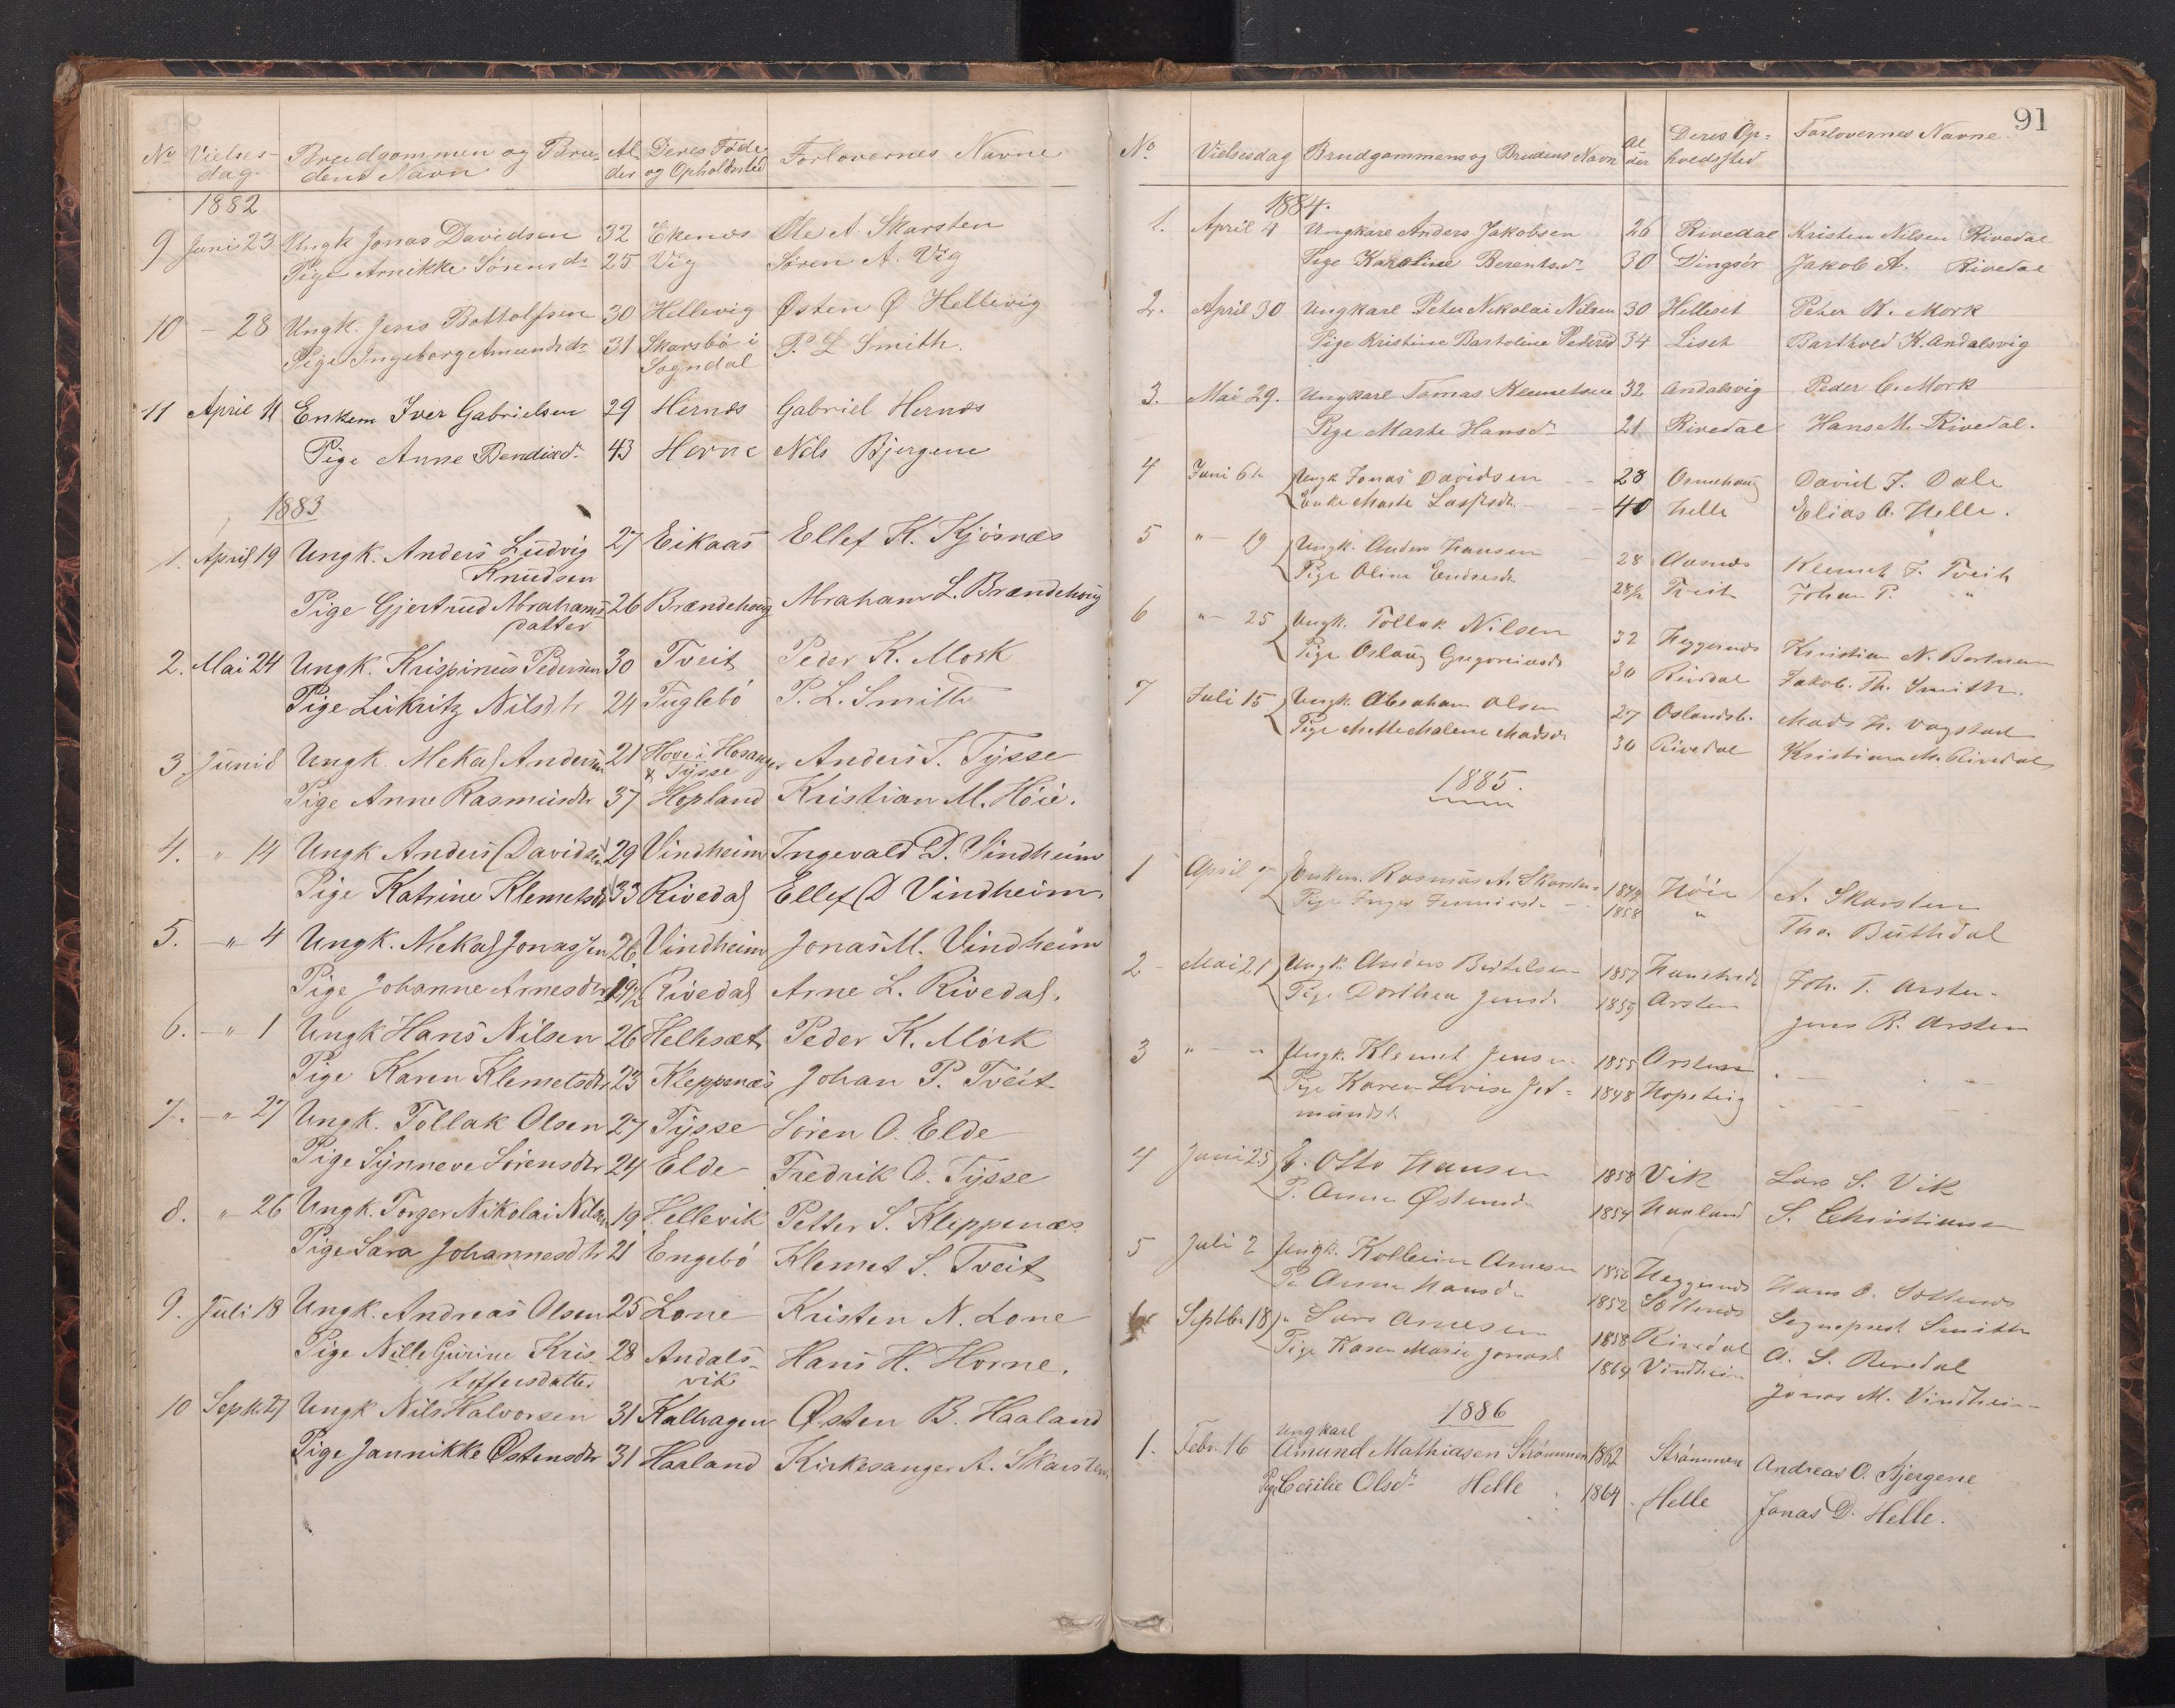 No Vielses- Brudgommen og Bru- Al- Deres Føde Forlovernes Navne
dag. dens Navn der og Opholdssted
1882
9 Juni 23 Ungk Jonas Davidsen 32 Ekenæs Ole A. Skarsten
Pige Arnikke Sørensdr 25 Vig Søren A. Vig
10 - 28 Ungk. Jens Bottolfsen 30 Hellevig Østen Ø Hellevig
Pige Ingeborg Amundsdr 31 Skarsbö i P. L Smith.
Sogndal
11 April 11 Enkem Iver Gabrielsen 29 Hernæs Gabriel Hernæs
Pige Anne Bendixdr 43 Horne Nels Bjergene
1883
1. April 19 Ungk. Anders Ludvig 27 Eikaas Ellef K. Kjøsnæs
Knudsen
Pige Gjertrud Abrahams- 26 Brændehoug Abraham L. Brændehoug
datter
2. Mai 24 Ungk. Krispinus Pedersen 30 Tveit Peder K. Mork
Pige Lukritz Nilsdtr 24 Fuglebö P. L. Smith
3. Juni 8 Ungk. Mekal Andersen 21 Hove i Hosanger Anders T. Tysse
& Tysse
Pige Anne Rasmusdtr 37 Hopland Kristian M. Höie.
4. " 14 Ungk Anders Davidsen 29 Vindheim Ingevald D. Vindheim
Pige Katrine Klemetsdtr 33 Rivedal Ellef D Vindheim
5. - " 4 Ungk. Mekal Jonassen 26 Vindheim Jonas M. Vindheim
Pige Johanne Arnesdtr 19½ Rivedal Arne L. Rivedal.
6. - " 1 Ungk Hans Nilsen 26 Hellesæt Peder K. Mörk
Pige Karen Klemetsdtr 23 Kleppenæs Johan P. Tveit
7. - " 27 Ungk. Tollak Olsen 27 Tysse Sören O. Elde
Pige Synneve Sörensdtr 24 Elde Fredrik O. Tysse
8. " 26 Ungk. Torger Nikolai Nilsen 19 Hellevik Petter S. Kleppenæs
Pige Sara Johannesdtr 21 Engebö Klemet S. Tveit
9. Juli 18 Ungk. Andreas Olsen 25 Lone Kristen N. Lone
Pige Nille Gurine Kris- 28 Andals- Hans H. Horne.
toffersdatter vik
10 Sept. 27 Ungk Nils Halvorsen 31 Kalhagen Østen B. Haaland
Pige Jannikke Østensdtr 31 Haaland Kirkesanger A. Skarsten
91
No. Vielsesdag Brudgommens og Brudens Navn Al der Deres Op- Forlovernes Navne
holdssted
1884.
1. April 4 Ungkarl Anders Jakobsen 26 Rivedal Kristen Nilsen Rivedal
Pige Karoline Berentsdr 30 Dingsör Jakob A. Rivedal
2. April 30 Ungkarl Peter Nikolai Nilsen 30 Helleset Peter K. Mork
Pige Kristine Bartoline Pedersd 34 Liset Barthold K. Andalsvig
3. Mai 29. Ungkarl Tomas Klemetsen 32 Andalsvig Peder C. Mork
Pige Marte Hansdr 21 Rivedal Hans M. Rivedal.
4 Juni 6 Ungk Jonas Davidsen 28 Ormehaug David J. Dale
Enke Marte Lassesdtr 40 Helle Elias O. Helle.
5 " 19 Ungk. Anders Hansen 28 Aasnæs Klemet J. Tveit
Pige Oline Endresdtr 28½ Tveit Johan P. "
6 " 25 Ungk. Tollak Nilsen 32 Heggenæs Kristian N.
Pige Oslaug Gregoriusdtr 30 Rivedal Jakob. Th. Smith.
7 Juli 15 Ungk. Abraham Olsen 27 Oslandsb. Mads H. Vagstad
Pige Mette Malene Madsdr 30 Rivedal Kristian M. Rivedal
1885.
1 April 7 Enkem. Rasmus A. Skarsten 1844 Höie A. Skarsten
Pige Inger 1858 " Tho. Buthdal
2 Mai 21 Ungk. Anders Bertelsen 1857 Joh. T. Arsten
Pige Dorthea Jensd. 1859 Arsten Jens R. Arsten
3 " " Ungk. Klemet Jensen 1855 Arsten
Pige Karen Lovise Jet- 1848 Hopsteig
mundsd.
4 Juni 25 E. Otto Hansen 1858 Vik Lars S. Vik
P. Anna Østensdr 1854 Haaland S. Christiansen
5 Juli 2 Ungk. Kolbein Arnesen 1856 Heggenæs Hans O. Soltenæs
Pe Anna Hansdr 1852 Soltenæs Sogneprest Smith
6 Septbr 18 " Lars Arnesen 1858 Rivedal A. L. Rivedal
Pige Karen Marie Jonasd. 1864 Vindheim Jonas M. Vindheim
1886
Ungkarl
1. Febr. 16 Amund Mathiasen Strømmen 1862 Strømmen Andreas O. Bjergene
Pige Cecilie Olsdr Helle 1864. Helle Jonas D. Helle.